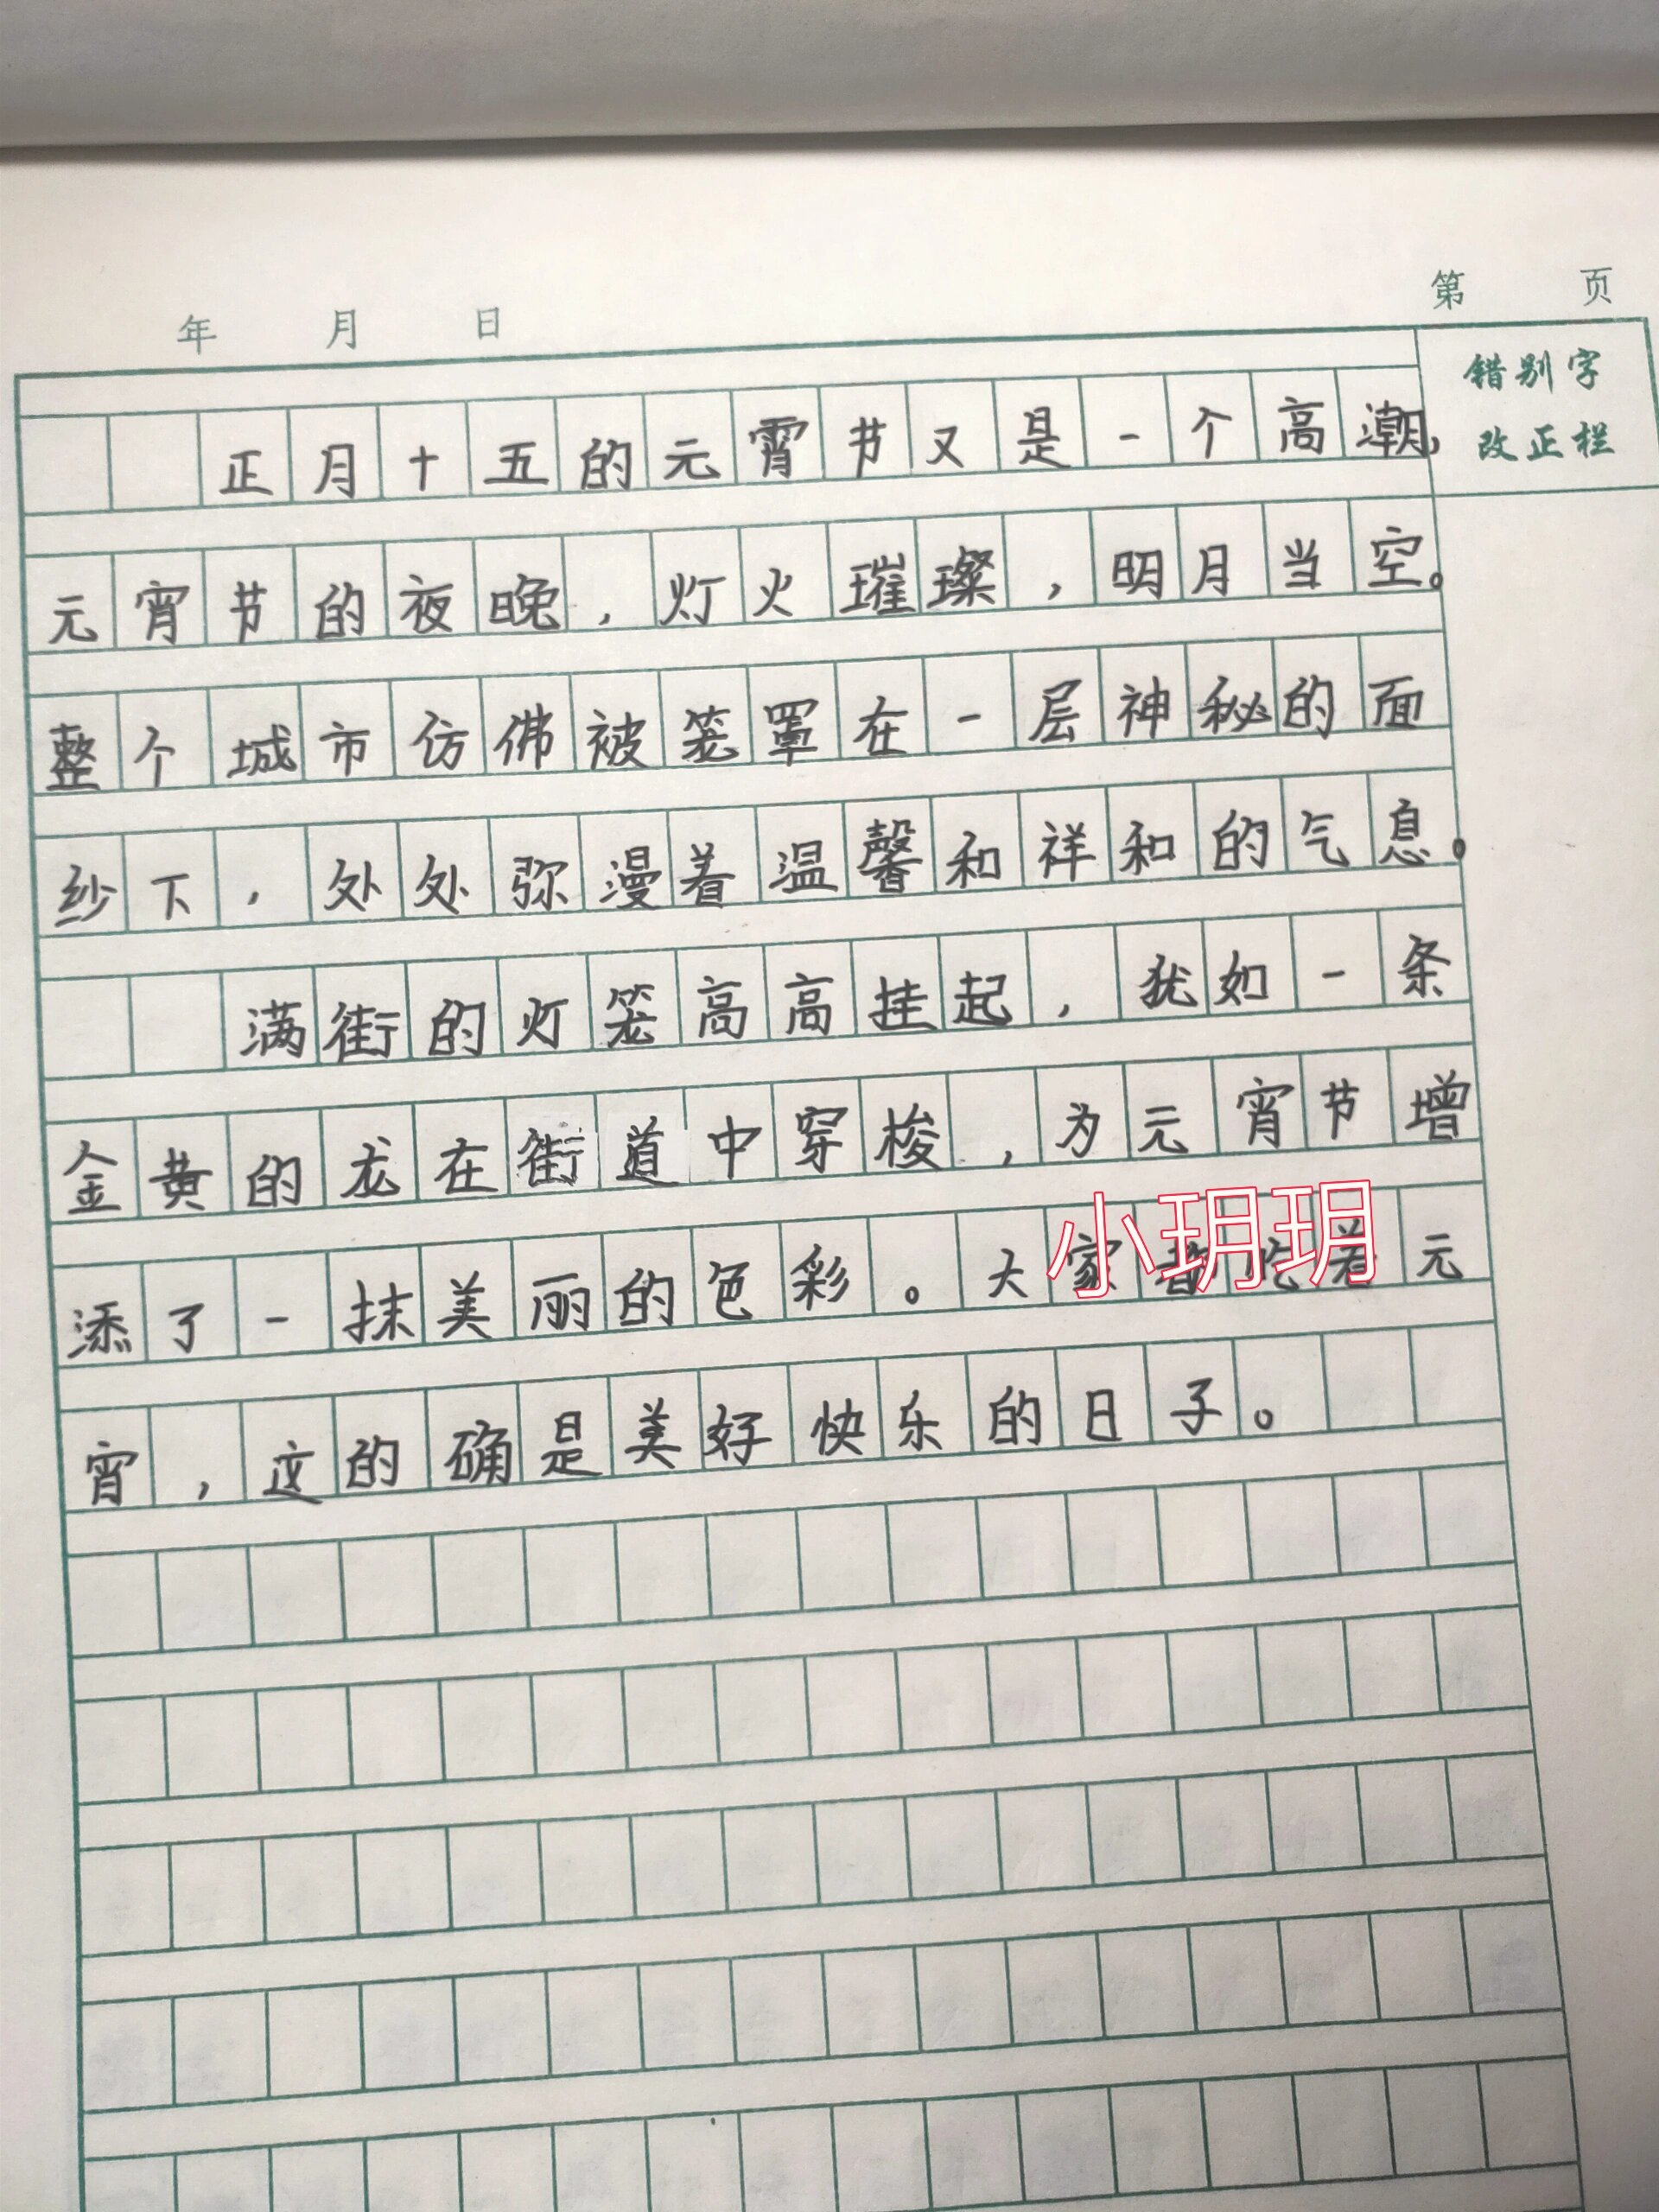 年 月 日
第 页
错别字
改正栏
正月十五的元霄节又是一个高潮，
元宵节的夜晚，灯火璀璨，明月当空。
整个城市仿佛被笼罩在一层神秘的面
纱下，处处弥漫着温馨和祥和的气息。
满街的灯笼高高挂起，犹如一条
金黄的龙在街道中穿梭，为元宵节增
添了一抹美丽的色彩。大家都吃着元
宵，这的确是美好快乐的日子。
小玥玥